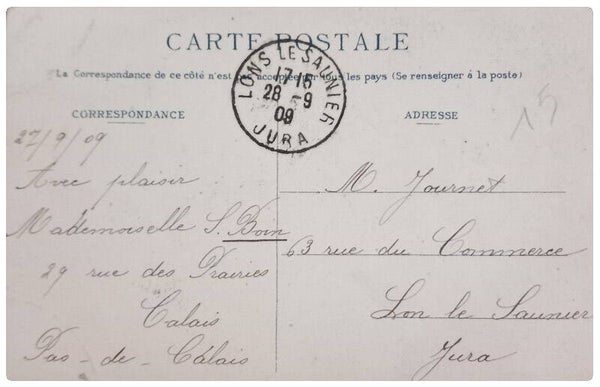 CARTE POSTALE
La Correspondance de ce côté n'est pas acceptée par tous les pays (Se renseigner à la poste)
LONS LE SAUNIER
17 15
28 - 9
09
JURA
CORRESPONDANCE
ADRESSE
15
27/9/09
Avec plaisir
Mademoiselle S. Boin
29 rue des Prairies
Calais
Pas-de-Calais
M. Journet
63 rue du Commerce
Lon le Saunier
Jura